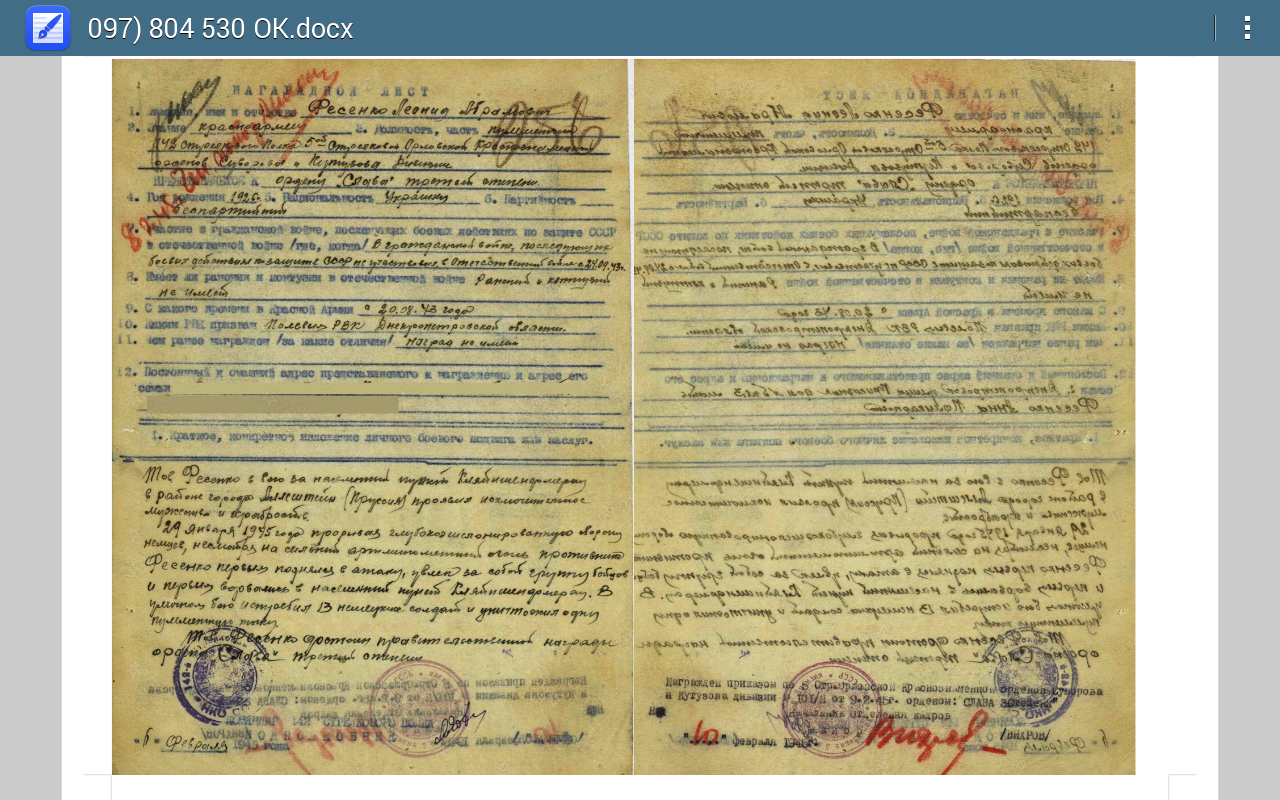 097) 804 530 OK.docx
НАГРАДНОЙ ЛИСТ
1. Фамилия, имя и отчество Фесенко Леонид Абрамович
2. Звание красноармеец 3. Должность, часть пулеметчик
142 Стрелкового Полка 5ой Стрелковой Орловской Краснознаменной
орденов Суворова и Кутузова Дивизии
ПРЕДСТАВЛЯЕТСЯ К ордену "Слава" третей степени.
4. Год рождения 1926. 5. Национальность Украинец 6. Партийность
беспартийный
7. Участие в гражданской войне, последующих боевых действиях по защите СССР
и отечественной войне /где, когда/ В гражданской войне, последующих
боевых действиях по защите СССР не участвовал, в Отечественной войне с 24.09.43г.
8. Имеет ли ранения и контузии в отечественной войне Ранений и контузий
не имеет
9. С какого времени в Красной Армии с 20.08.43 года
10. Каким РВК призван Полевым РВК Днепропетровской области.
11. Чем ранее награжден /за какие отличия/ Наград не имеет
12. Постоянный домашний адрес представляемого к награждению и адрес его
семьи
1. Краткое, конкретное изложение личного боевого подвига или заслуг.
Тов Фесенко в бою за населенный пункт
в районе города (Пруссия) проявил исключительное
мужество и храбрость.
29 Января 1945 года прорывая глубокоэшелонированную оборону
немцев, несмотря на сильный артминометный огонь противника
Фесенко первым поднялся в атаку, увлек за собой группу бойцов
и первым ворвались в населенный пункт В
уличном бою истребил 13 немецких солдат и уничтожил одну
пулеметную точку.
Тов. Фесенко достоин правительственной награды
ордена "Слава" третей степени
КОМАНДИР 142 СТРЕЛКОВОГО ПОЛКА
ПОДПОЛКОВНИК
"6" Февраля 1945 года
Награжден приказом по 5 Стр. Орловской Краснознаменной орденов Суворова
и Кутузова дивизии от 9.2.45г. орденом: СЛАВА 3 степени
Начальник отделения кадров
/ВИХРОВ/
"10" февраля 1945г.